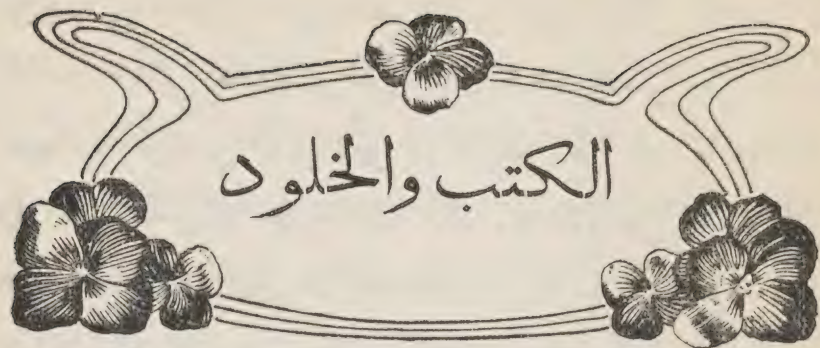 الكتب والخلود